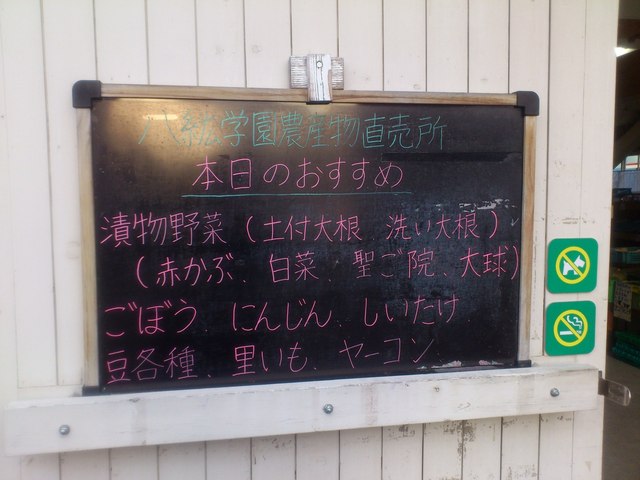 八紘学園農産物直売所
本日のおすすめ
漬物野菜（土付大根 洗い大根）
（赤かぶ、白菜、聖ご院、大球）
ごぼう、にんじん、しいたけ
豆各種、里いも、ヤーコン